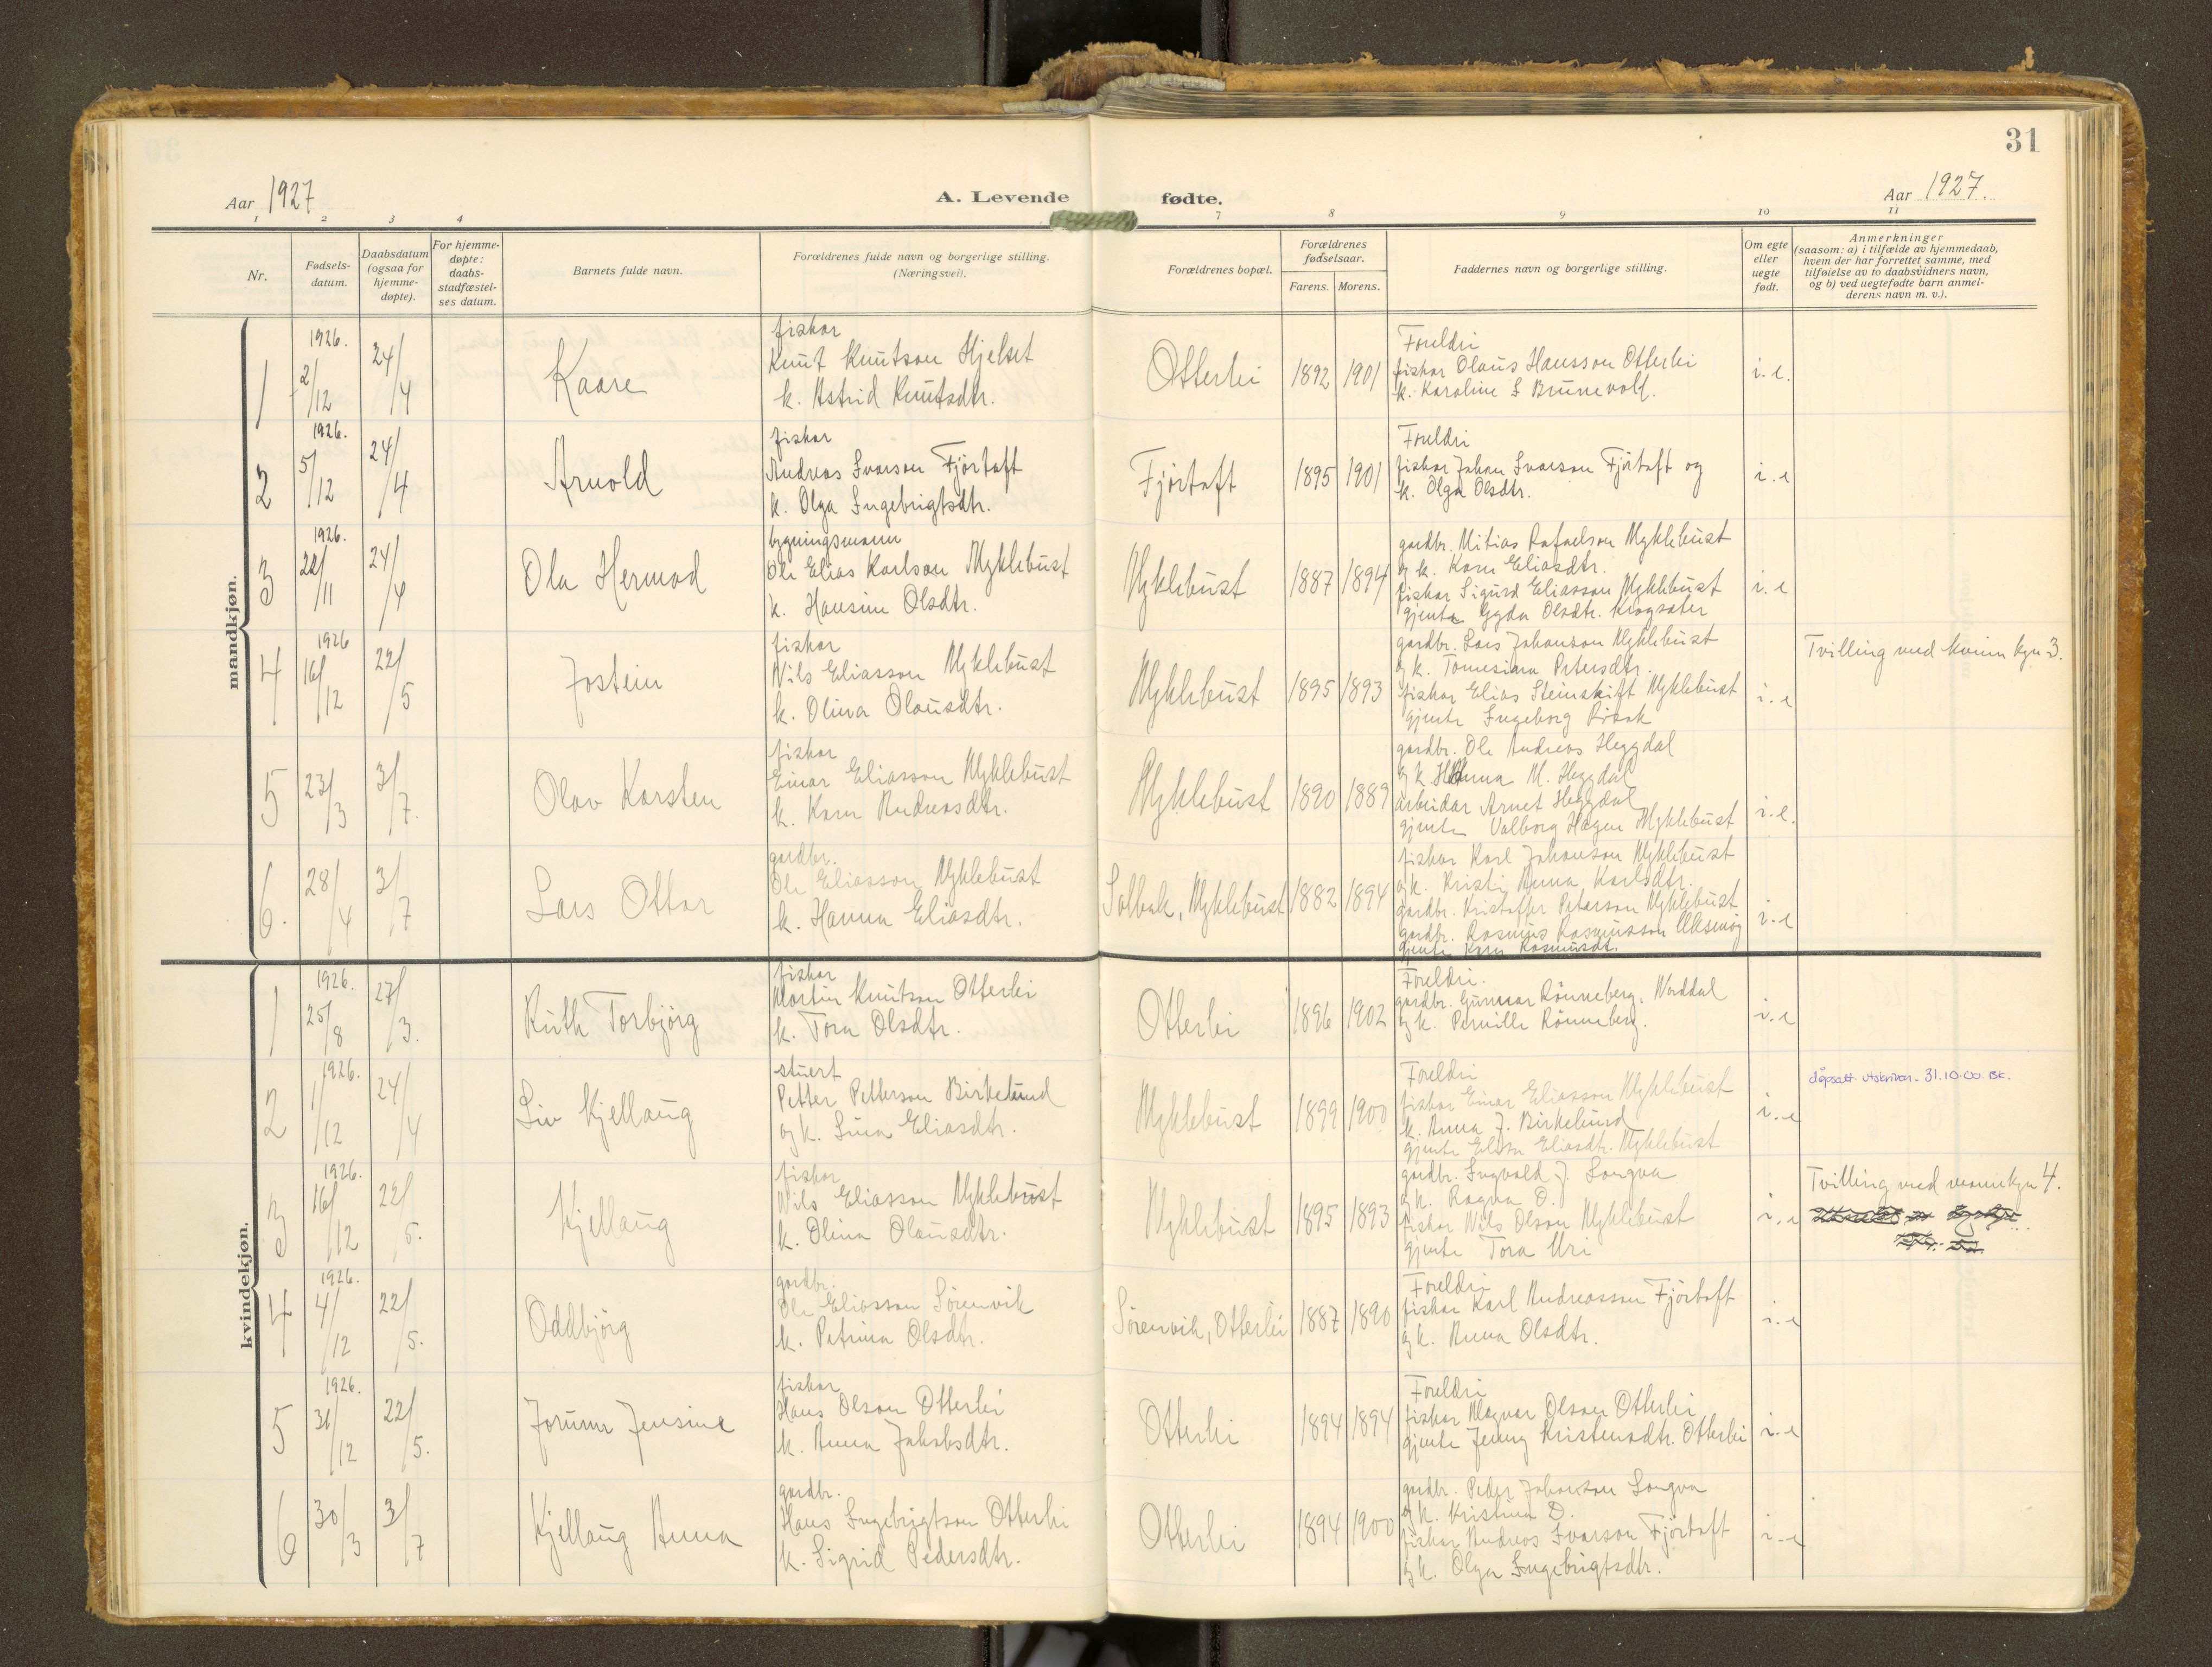 31
Aar 1927
A. Levende fødte.
Aar 1927.
1 2 3 4 7 8 9 10 11
Nr.
Fødsels-
datum.
Daabsdatum
(ogsaa for
hjemme-
døpte).
For hjemme-
døpte:
daabs-
stadfæstel-
ses datum.
Barnets fulde navn.
Forældrenes fulde navn og borgerlige stilling.
(Næringsvei).
Forældrenes bopæl.
Forældrenes
fødselsaar.
Farens. Morens.
Faddernes navn og borgerlige stilling.
Om egte
eller
uegte
født.
Anmerkninger
(saasom: a) i tilfælde av hjemmedaab,
hvem der har forrettet samme, med
tilføielse av to daabsvidners navn,
og b) ved uegtefødte barn anmel-
derens navn m. v.).
mandkjøn.
1
1926.
2/12
24/4
Kaare
fiskar
Knut Knutson Hjelset
k. Astrid Knutsdtr.
Otterlei
1892 1901
Foreldri
fiskar Olaus Hansson Otterlei
k. Karoline S Brunevoll.
i. e.
2
1926.
5/12
24/4
Arnold
fiskar
Andreas Ivarson Fjörtoft
k. Olga Ingebrigtsdtr.
Fjörtoft
1895 1901
Foreldri
fiskar Johan Ivarson Fjörtoft og
k. Olga Olsdtr.
i. e
3
1926.
22/11
24/4
Ola Hermod
bygningsmann
Ole Elias Karlson Myklebust
k. Hansine Olsdtr.
Myklebust
1887 1894
gardbr. Mitias Rafaelson Myklebust
og k. Karen Eliasdtr.
fiskar Sigurd Eliasson Myklebust
gjenta Gyda Olsdtr. Krogsæter
i. e
4
1926
16/12
22/5
Jostein
fiskar
Nils Eliasson Myklebust
k. Olina Olausdtr.
Myklebust
1895 1893
gardbr. Lars Johanson Myklebust
og k. Tomesiana Petersdtr.
fiskar Elias Steinskift Myklebust
gjenta Ingeborg
i. e
Tvilling med kvinn kyn 3.
5
23/3
3/7.
Olav Karsten
fiskar
Einar Eliasson Myklebust
k. Karen Andreasdtr.
Myklebust
1890 1889
gardbr. Ole Andreas Heggdal
og k. Hanna M. Heggdal
arbeidar Arnet Heggdal
gjenta Valborg Hagen Myklebust
i. e.
6.
28/4
3/7
Lars Ottar
gardbr.
Ole Eliasson Myklebust
k. Hanna Eliasdtr.
Solbak, Myklebust
1882 1894
fiskar Karl Johanson Myklebust
og k. Kristi Anna Karlsdtr.
gardbr. Kristoffer Peterson Myklebust
gardbr. Rasmus Rasmusson Ulksnöy
gjenta Karen Rasmusdt.
i. e
kvindekjøn.
1
1926.
25/8
27/3.
Ruth Torbjörg
fiskar
Martin Knutson Otterlei
k. Tora Olsdtr.
Otterlei
1896 1902
Foreldri.
gardbr. Gunnar Rönneberg, Norddal
og k. Pernille Rönneberg.
i. e
2
1926.
1/12
24/4
Liv Kjellaug
stuert
Petter Petterson Birkelund
og k. Lina Eliasdtr.
Myklebust
1899 1900
Foreldri
fiskar Einar Eliasson Myklebust
k. Anna J. Birkelund
gjenta Elisa Eliasdt. Myklebust
i. e
dåpsatt. utskriven. 31.10.00. BK.
3
1926.
16/12
22/5.
Kjellaug
fiskar
Nils Eliasson Myklebust
k. Olina Olausdtr.
Myklebust
1895 1893
gardbr. Ingvald J. Longva
og k. Ragna O.
fiskar Nils Olson Myklebust
gjente Tora Uri
i. e
Tvilling med mannkyn 4.
4
1926.
4/12
22/5.
Oddbjörg
gardbr.
Ole Eliasson Sörenvik
k. Petrina Olsdtr.
Sörenvik, Otterlei
1887 1890
Foreldri
fiskar Karl Andreasson Fjörtoft
og k. Anna Olsdtr.
i. e
5
1926.
31/12
22/5.
Jorunn Jensine
fiskar
Hans Olson Otterlei
k. Anna Jakobsdtr.
Otterlei
1894 1894
Foreldri
fiskar Magnar Olson Otterlei
gjente Jenny Kristensdtr. Otterlei
i. e
6
30/3
3/7
Kjellaug Anna
gardbr.
Hans Ingebrigtson Otterlei
k. Sigrid Pedersdtr.
Otterlei
1894 1900
gardbr. Peder Johanson Longva
og k. Kristina D.
fiskar Andreas Ivarson Fjörtoft
og k. Olga Ingebrigtsdtr.
i. e